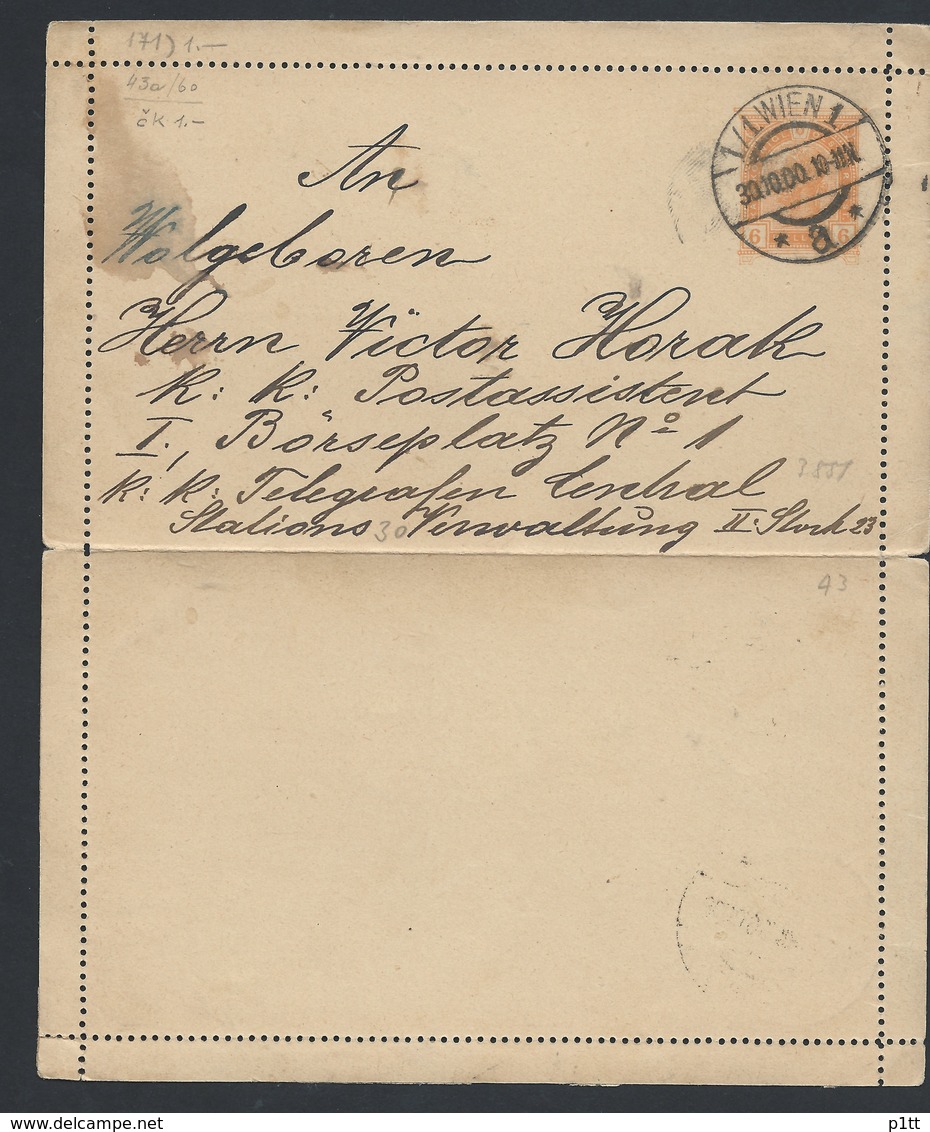 171) 1.—
43a/60
čK 1.—
1/1 WIEN 1
30.10.00. 10-11V.
* a *
6 6
An
Wolgeboren
Herrn Victor Horak
K: K: Postassistent
I., Börseplatz No 1
K: K: Telegrafen Central
3551
Stations Verwaltung II. Stock 23
30
43
p1tt